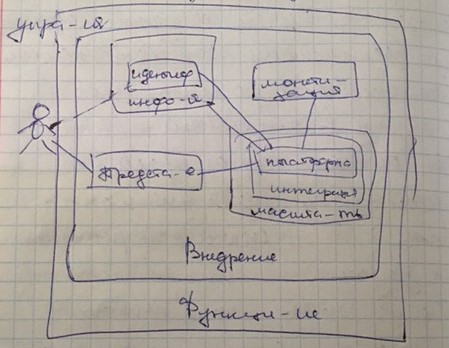 упра-ия
идентиф
инфо-я
монети-
зация
предста-е
платформа
интеграция
масшта-ть
Внедрение
Функци-ие